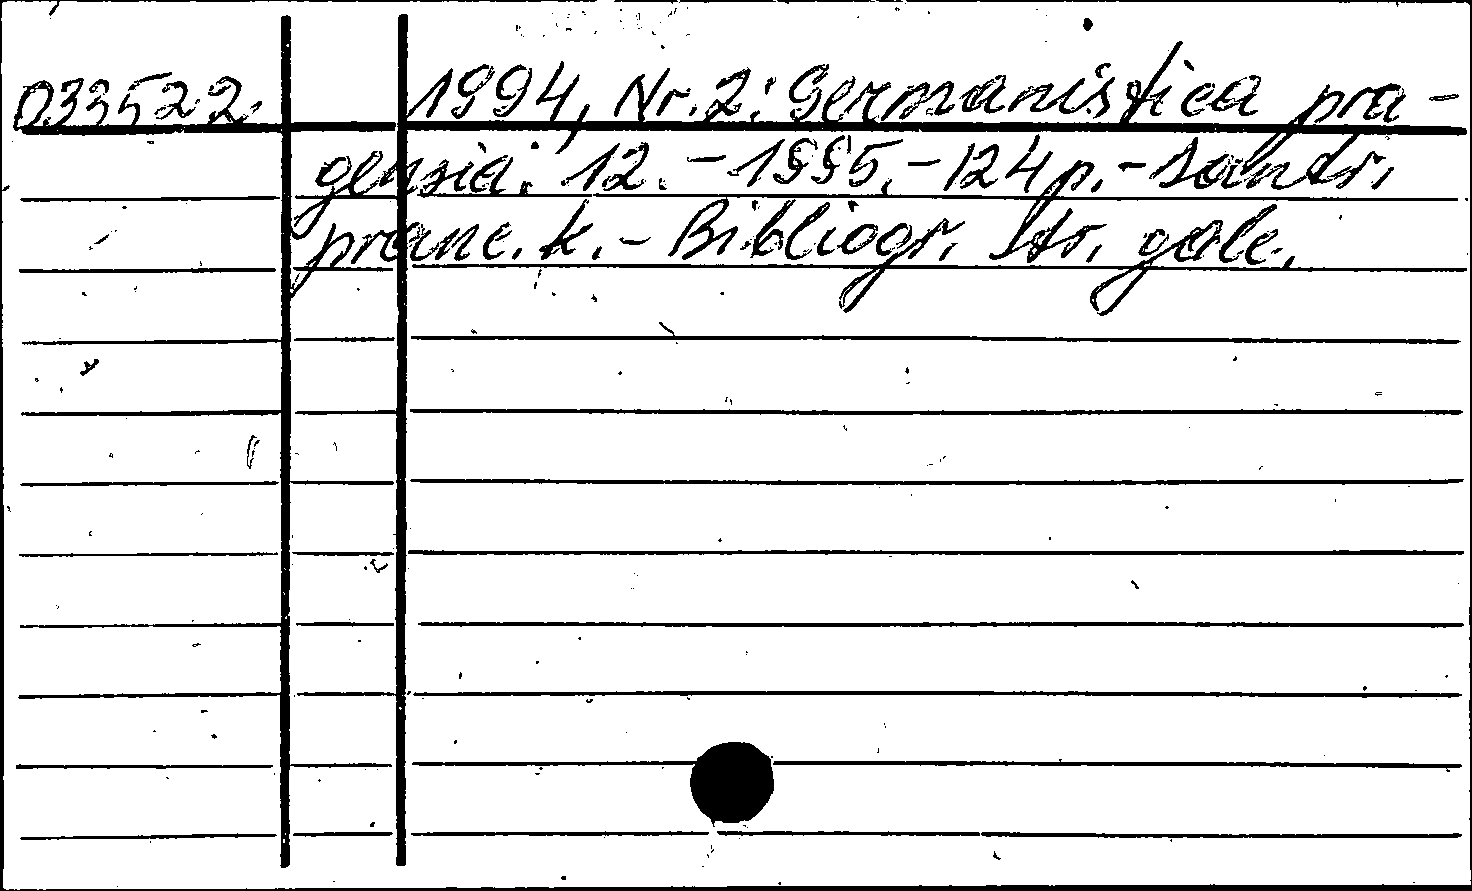 033522 1994, Nr. 2: Germanistica pra-
gensia. 12. - 1995. - 124 p. - Santr.
pranc. k. - Bibliogr. str. gale.